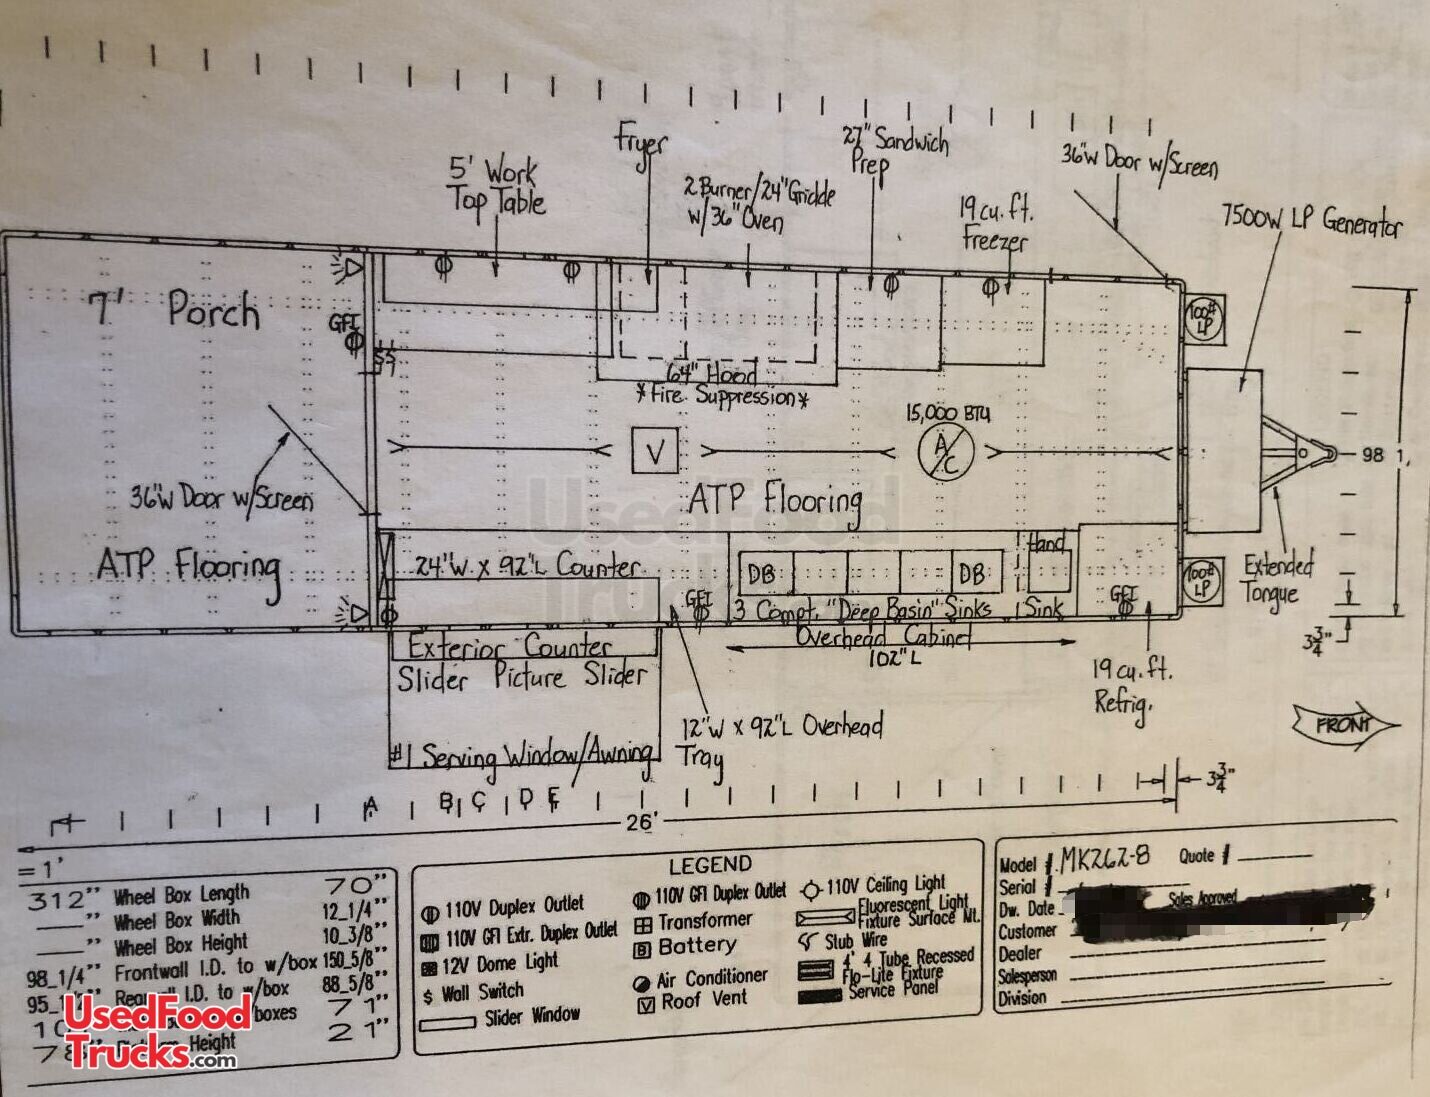 5' Work
Top Table
Fryer
2 Burner/24" Griddle
w/36" Oven
27" Sandwich
Prep
19 cu. ft.
Freezer
36"w Door w/Screen
7500W LP Generator
7' Porch
GFI
$$
100#
LP
64" Hood
*Fire Suppression*
15,000 BTU
V
A/C
98 1,
36"w Door w/Screen
ATP Flooring
UsedFood
ATP Flooring
24"W x 92"L Counter
DB
DB
Hand
Sink
GFI
3 Compt. "Deep Basin" Sinks
GFI
100#
LP
Extended
Tongue
3 3/4"
Exterior Counter
Overhead Cabinet
102"L
Slider Picture Slider
19 cu. ft.
Refrig.
12"W x 92"L Overhead
Tray
#1 Serving Window/Awning
FRONT
3 3/4"
A B C D E
26'
= 1'
312" Wheel Box Length 70"
" Wheel Box Width 12_1/4"
" Wheel Box Height 10_3/8"
98_1/4" Frontwall I.D. to w/box 150_5/8"
I.D. to w/box 88_5/8"
/boxes 71"
Height 21"
UsedFood
Trucks.com
LEGEND
110V Duplex Outlet
110V GFI Extr. Duplex Outlet
12V Dome Light
$ Wall Switch
Slider Window
110V GFI Duplex Outlet
Transformer
B Battery
Air Conditioner
V Roof Vent
110V Ceiling Light
Fluorescent Light
Fixture Surface Mt.
Stub Wire
4' 4 Tube Recessed
Flo-Lite Fixture
Service Panel
Model # MK262-8 Quote #
Serial #
Dw. Date Sales Approved
Customer
Dealer
Salesperson
Division